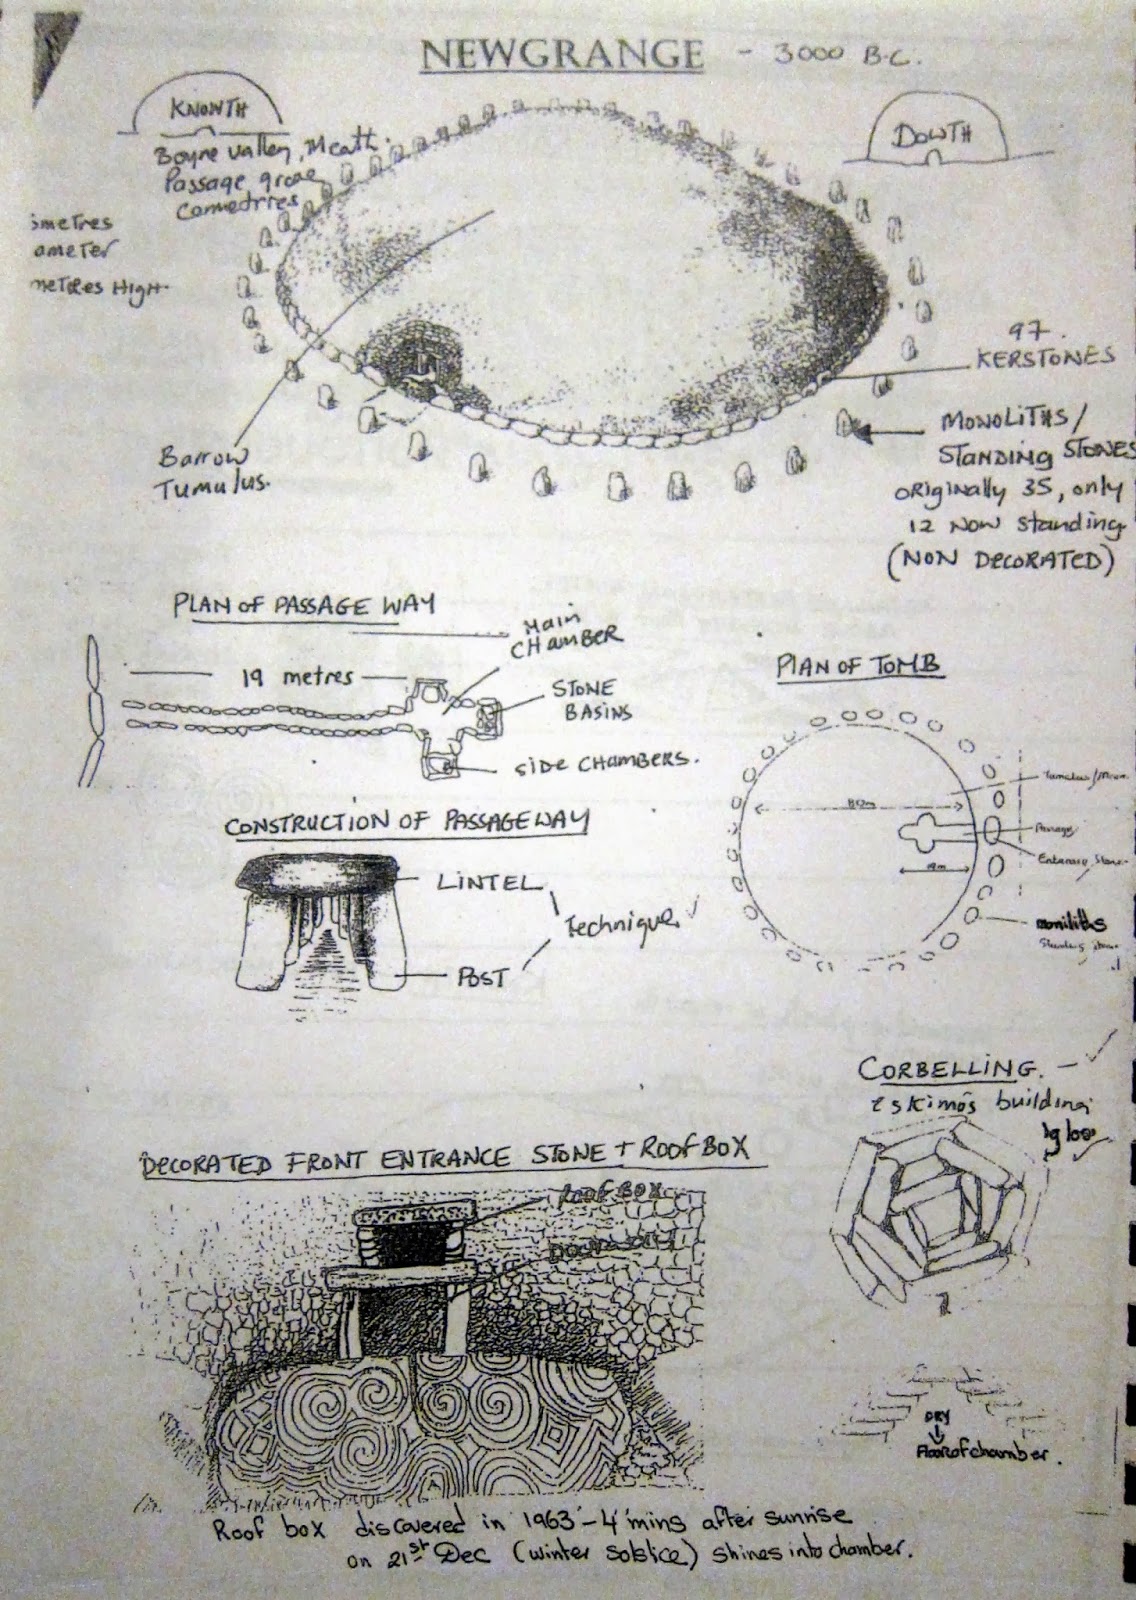 NEWGRANGE - 3000 B.C.
KNOWTH
DOWTH
Boyne Valley, Meath.
Passage grave
Cemetries
metres
ameter
metres HIGH.
97.
KERSTONES
MONOLITHS/
STANDING STONES
originally 35, only
12 Now standing
(NON DECORATED)
Barrow
Tumulus.
PLAN OF PASSAGE WAY
Main
CHAMBER
19 metres
STONE
BASINS
SIDE CHAMBERS.
PLAN OF TOMB
Tumulus/
Passage
Entrance Stone
19m
moniliths
Standing stone
CONSTRUCTION OF PASSAGEWAY
LINTEL
Technique
POST
CORBELLING. -
eskimos building
Igloo
DECORATED FRONT ENTRANCE STONE + ROOF BOX
ROOF BOX
DRY
Floor of chamber.
Roof box discovered in 1963 - 4 mins after sunrise
on 21st Dec (winter solstice) shines into chamber.